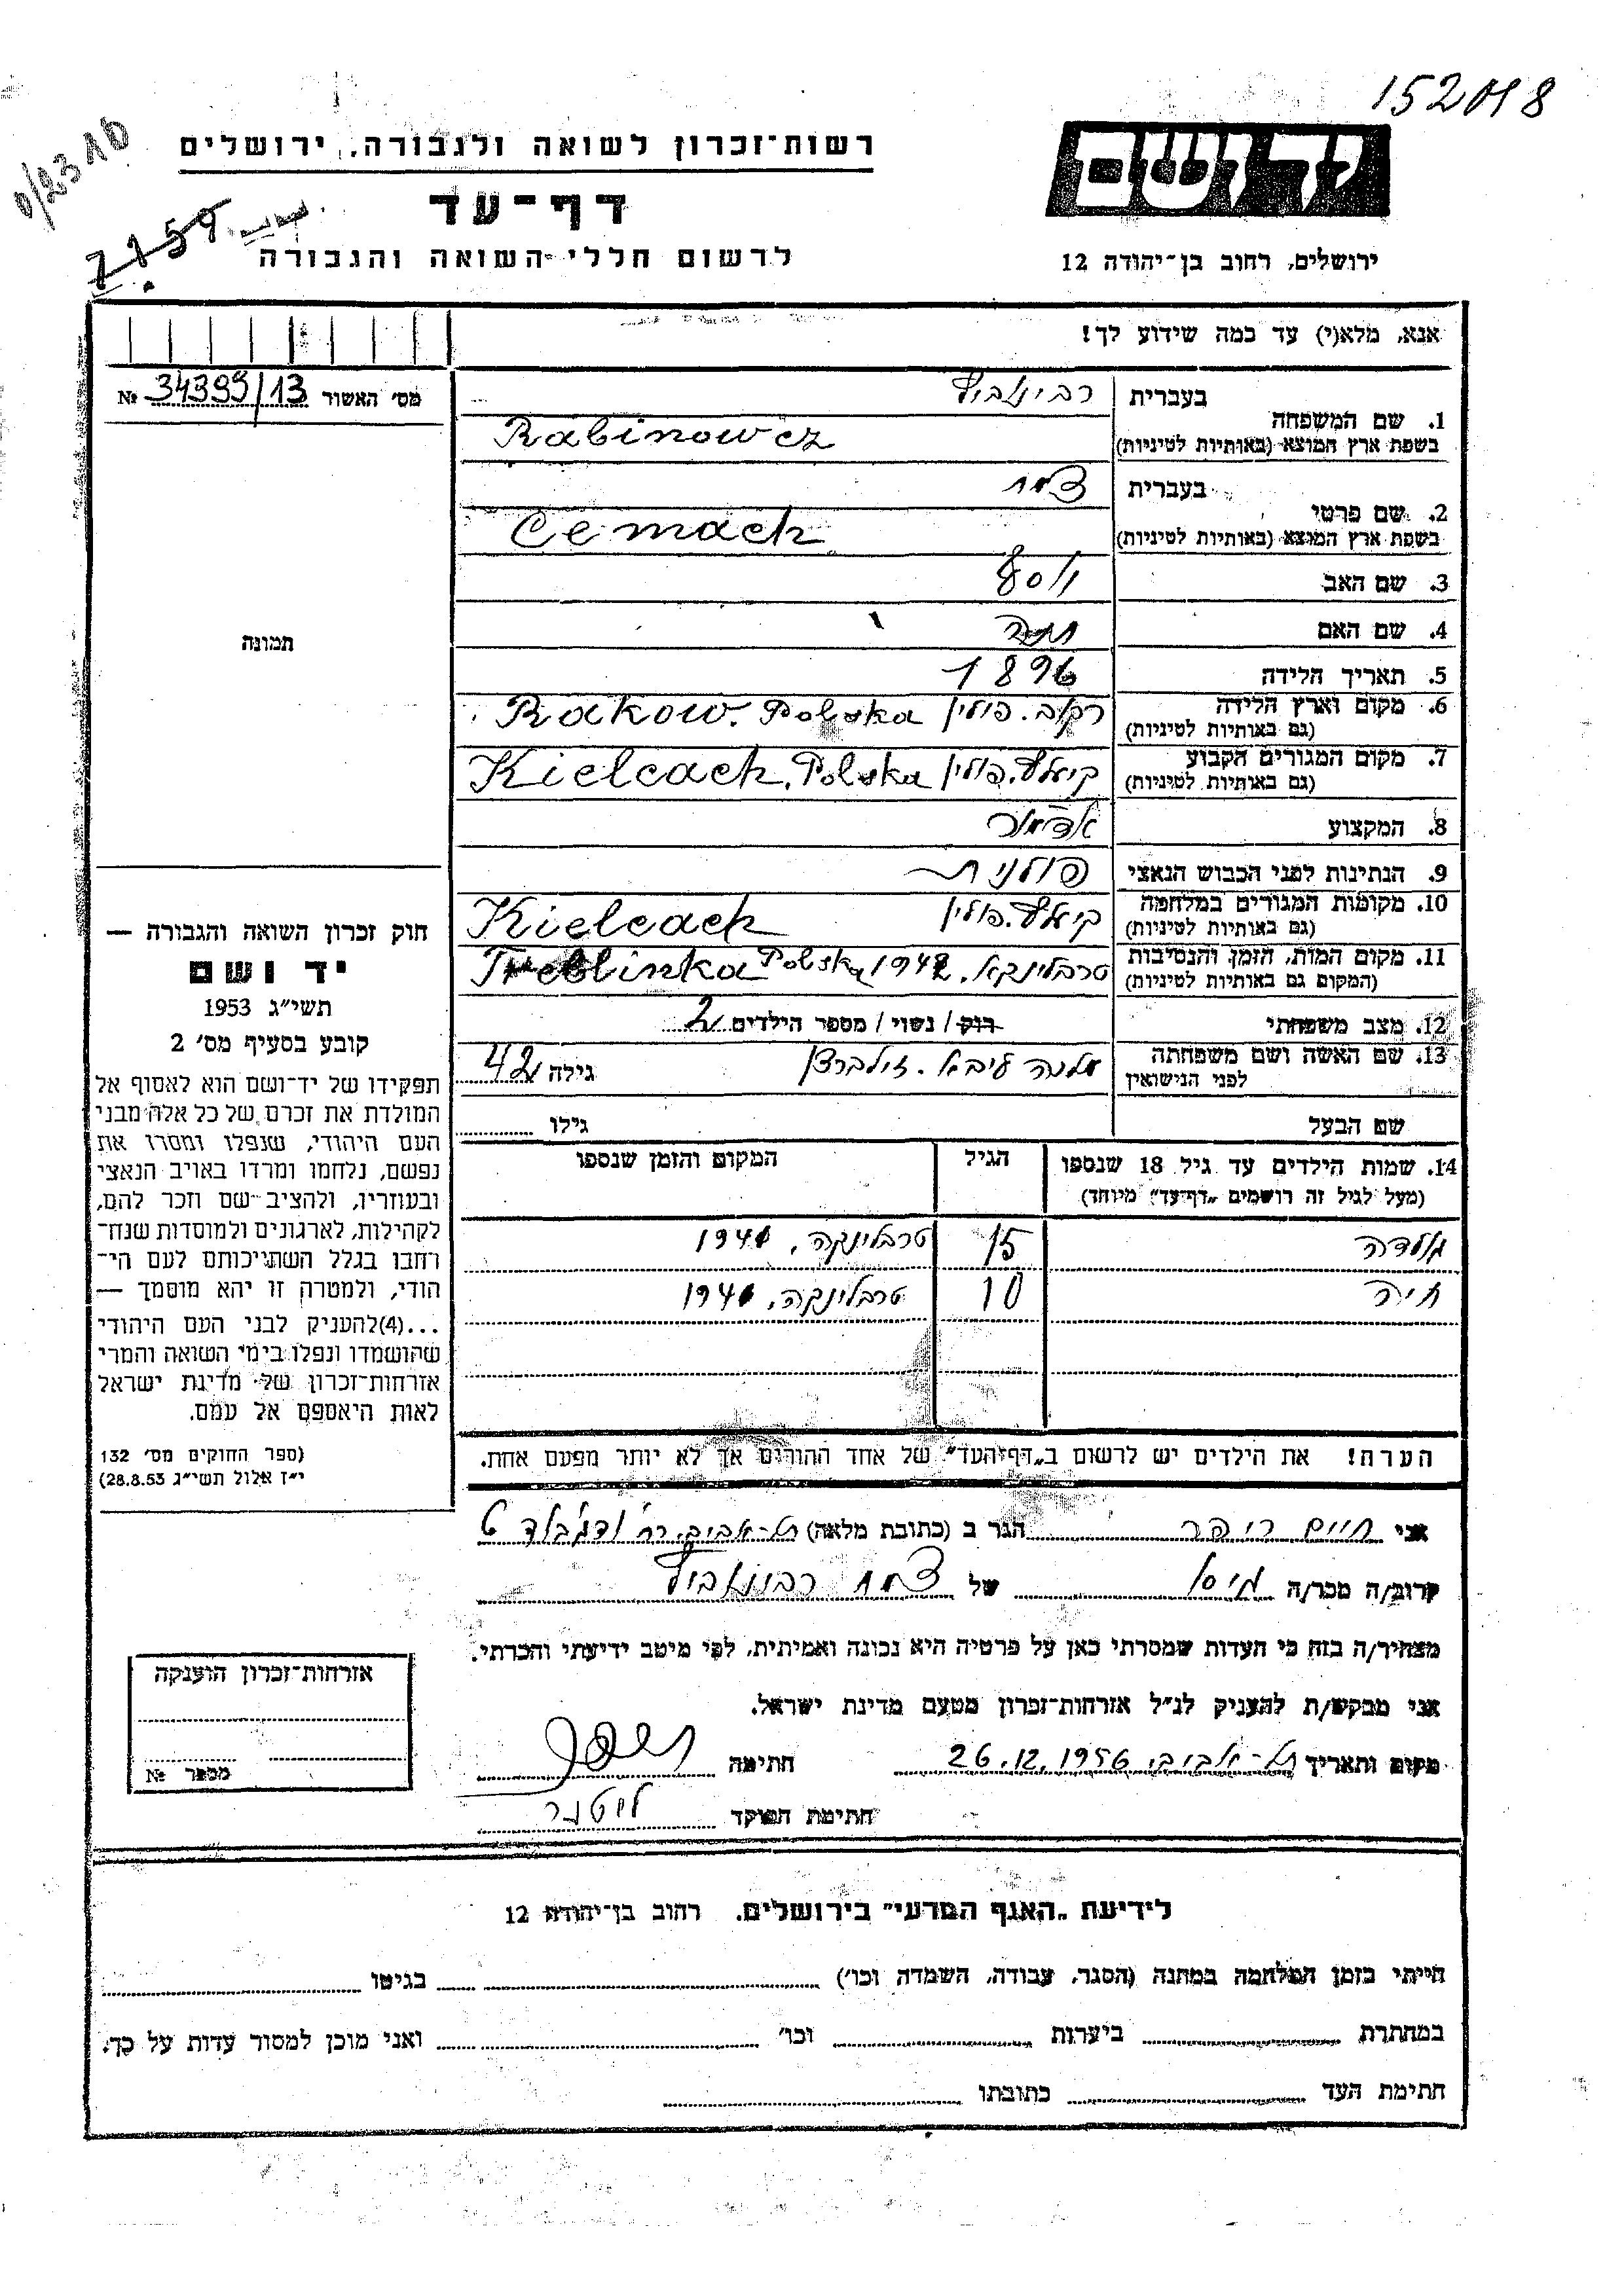 152018
0/2310
רשות־זכרון לשואה ולגבורה, ירושלים
יד ושם
דף־עד
7159
לרשום חללי השואה והגבורה
ירושלים, רחוב בן־יהודה 12
אנא, מלא(י) עד כמה שידוע לך!
מס׳ האשור 34399/13 №
בעברית רבינוביץ
1. שם המשפחה
בשפת ארץ המוצא (באותיות לטיניות) Rabinowicz
בעברית צמח
2. שם פרטי
בשפת ארץ המוצא (באותיות לטיניות) Cemach
3. שם האב יוסף
4. שם האם חנה
5. תאריך הלידה 1896
6. מקום וארץ הלידה רקוב. פולין Rakow. Polska
(גם באותיות לטיניות)
7. מקום המגורים הקבוע קיאלץ. פולין Kielcach. Polska
(גם באותיות לטיניות)
8. המקצוע
9. הנתינות לפני הכבוש הנאצי פולנית
10. מקומות המגורים במלחמה קיאלץ. פולין Kielcach
(גם באותיות לטיניות)
11. מקום המות, הזמן והנסיבות טרבלינקא, 1942 Treblinka Polska
(המקום גם באותיות לטיניות)
12. מצב משפחתי רוק / נשוי / מספר הילדים 2
13. שם האשה ושם משפחתה זילברצן גילה 42
לפני הנישואין
שם הבעל גילו
14. שמות הילדים עד גיל 18 שנספו הגיל המקום והזמן שנספו
(מעל לגיל זה רושמים „דף־עד״ מיוחד)
גולדה 15 טרבלינקה, 194
חיה 10 טרבלינקה, 194
הערה! את הילדים יש לרשום ב„דף־העד״ של אחד ההורים אך לא יותר מפעם אחת.
תמונה
חוק זכרון השואה והגבורה —
יד ושם
תשי״ג 1953
קובע בסעיף מס׳ 2
תפקידו של יד־ושם הוא לאסוף אל
המולדת את זכרם של כל אלה מבני
העם היהודי, שנפלו ומסרו את
נפשם, נלחמו ומרדו באויב הנאצי
ובעוזריו, ולהציב שם וזכר להם,
לקהילות, לארגונים ולמוסדות שנח־
רבו בגלל השתייכותם לעם הי־
הודי, ולמטרה זו יהא מוסמך —
...(4)להעניק לבני העם היהודי
שהושמדו ונפלו בימי השואה והמרי
אזרחות־זכרון של מדינת ישראל
לאות היאספם אל עמם.
(ספר החוקים מס׳ 132
י״ז אלול תשי״ג 28.8.53)
אני חיים הגר ב (כתובת מלאה) תל-אביב, רח׳
קרוב/ה מכר/ה גיסו של צמח רבינוביץ
מצהיר/ה בזה כי העדות שמסרתי כאן על פרטיה היא נכונה ואמיתית, לפי מיטב ידיעתי והכרתי.
אני מבקש/ת להעניק לנ״ל אזרחות־זכרון מטעם מדינת ישראל.
מקום ותאריך תל-אביב, 26.12.1956 חתימה
חתימת הפוקד ליטנר
אזרחות־זכרון הוענקה
מספר №
לידיעת „האגף המדעי״ בירושלים. רחוב בן־יהודה 12
הייתי בזמן המלחמה במחנה (הסגר, עבודה, השמדה וכו׳) בגיטו
במחתרת ביערות וכו׳ ואני מוכן למסור עדות על כך.
חתימת העד כתובתו